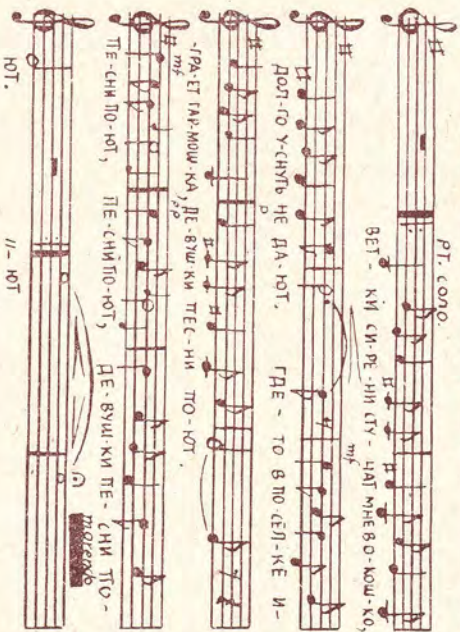 РТ. СОЛО.
ВЕТ - КИ СИ-РЕ-НИ СТУ - ЧАТ МНЕ В О-КОШ-КО,
mf
ДОЛ-ГО У-СНУТЬ НЕ ДА-ЮТ. ГДЕ - ТО В ПО-СЁЛ-КЕ И-
p
-ГРА-ЕТ ГАР-МОШ-КА, ДЕ-ВУШ-КИ ПЕС-НИ ПО-ЮТ.
pp
mf
ПЕ-СНИ ПО-ЮТ, ПЕ-СНИ ПО-ЮТ, ДЕ-ВУШ-КИ ПЕ-СНИ ПО-
morendo
ЮТ. //-ЮТ